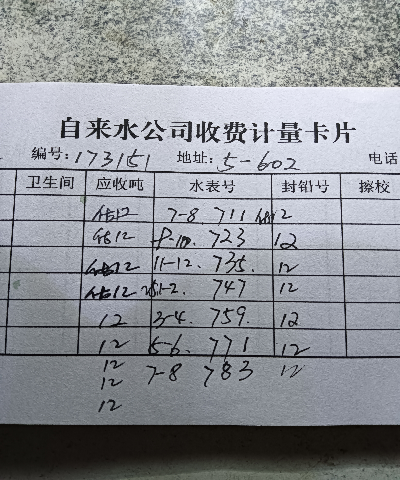 自来水公司收费计量卡片
编号:173151 地址:5-602 电话
卫生间 应收吨 水表号 封铅号 擦校
12 7-8 711 12
12 9-10. 723 12
12 11-12. 735. 12
12 1-2. 747 12
12 3-4. 759. 12
12 5-6. 771 12
12
12 7-8 783 12
12